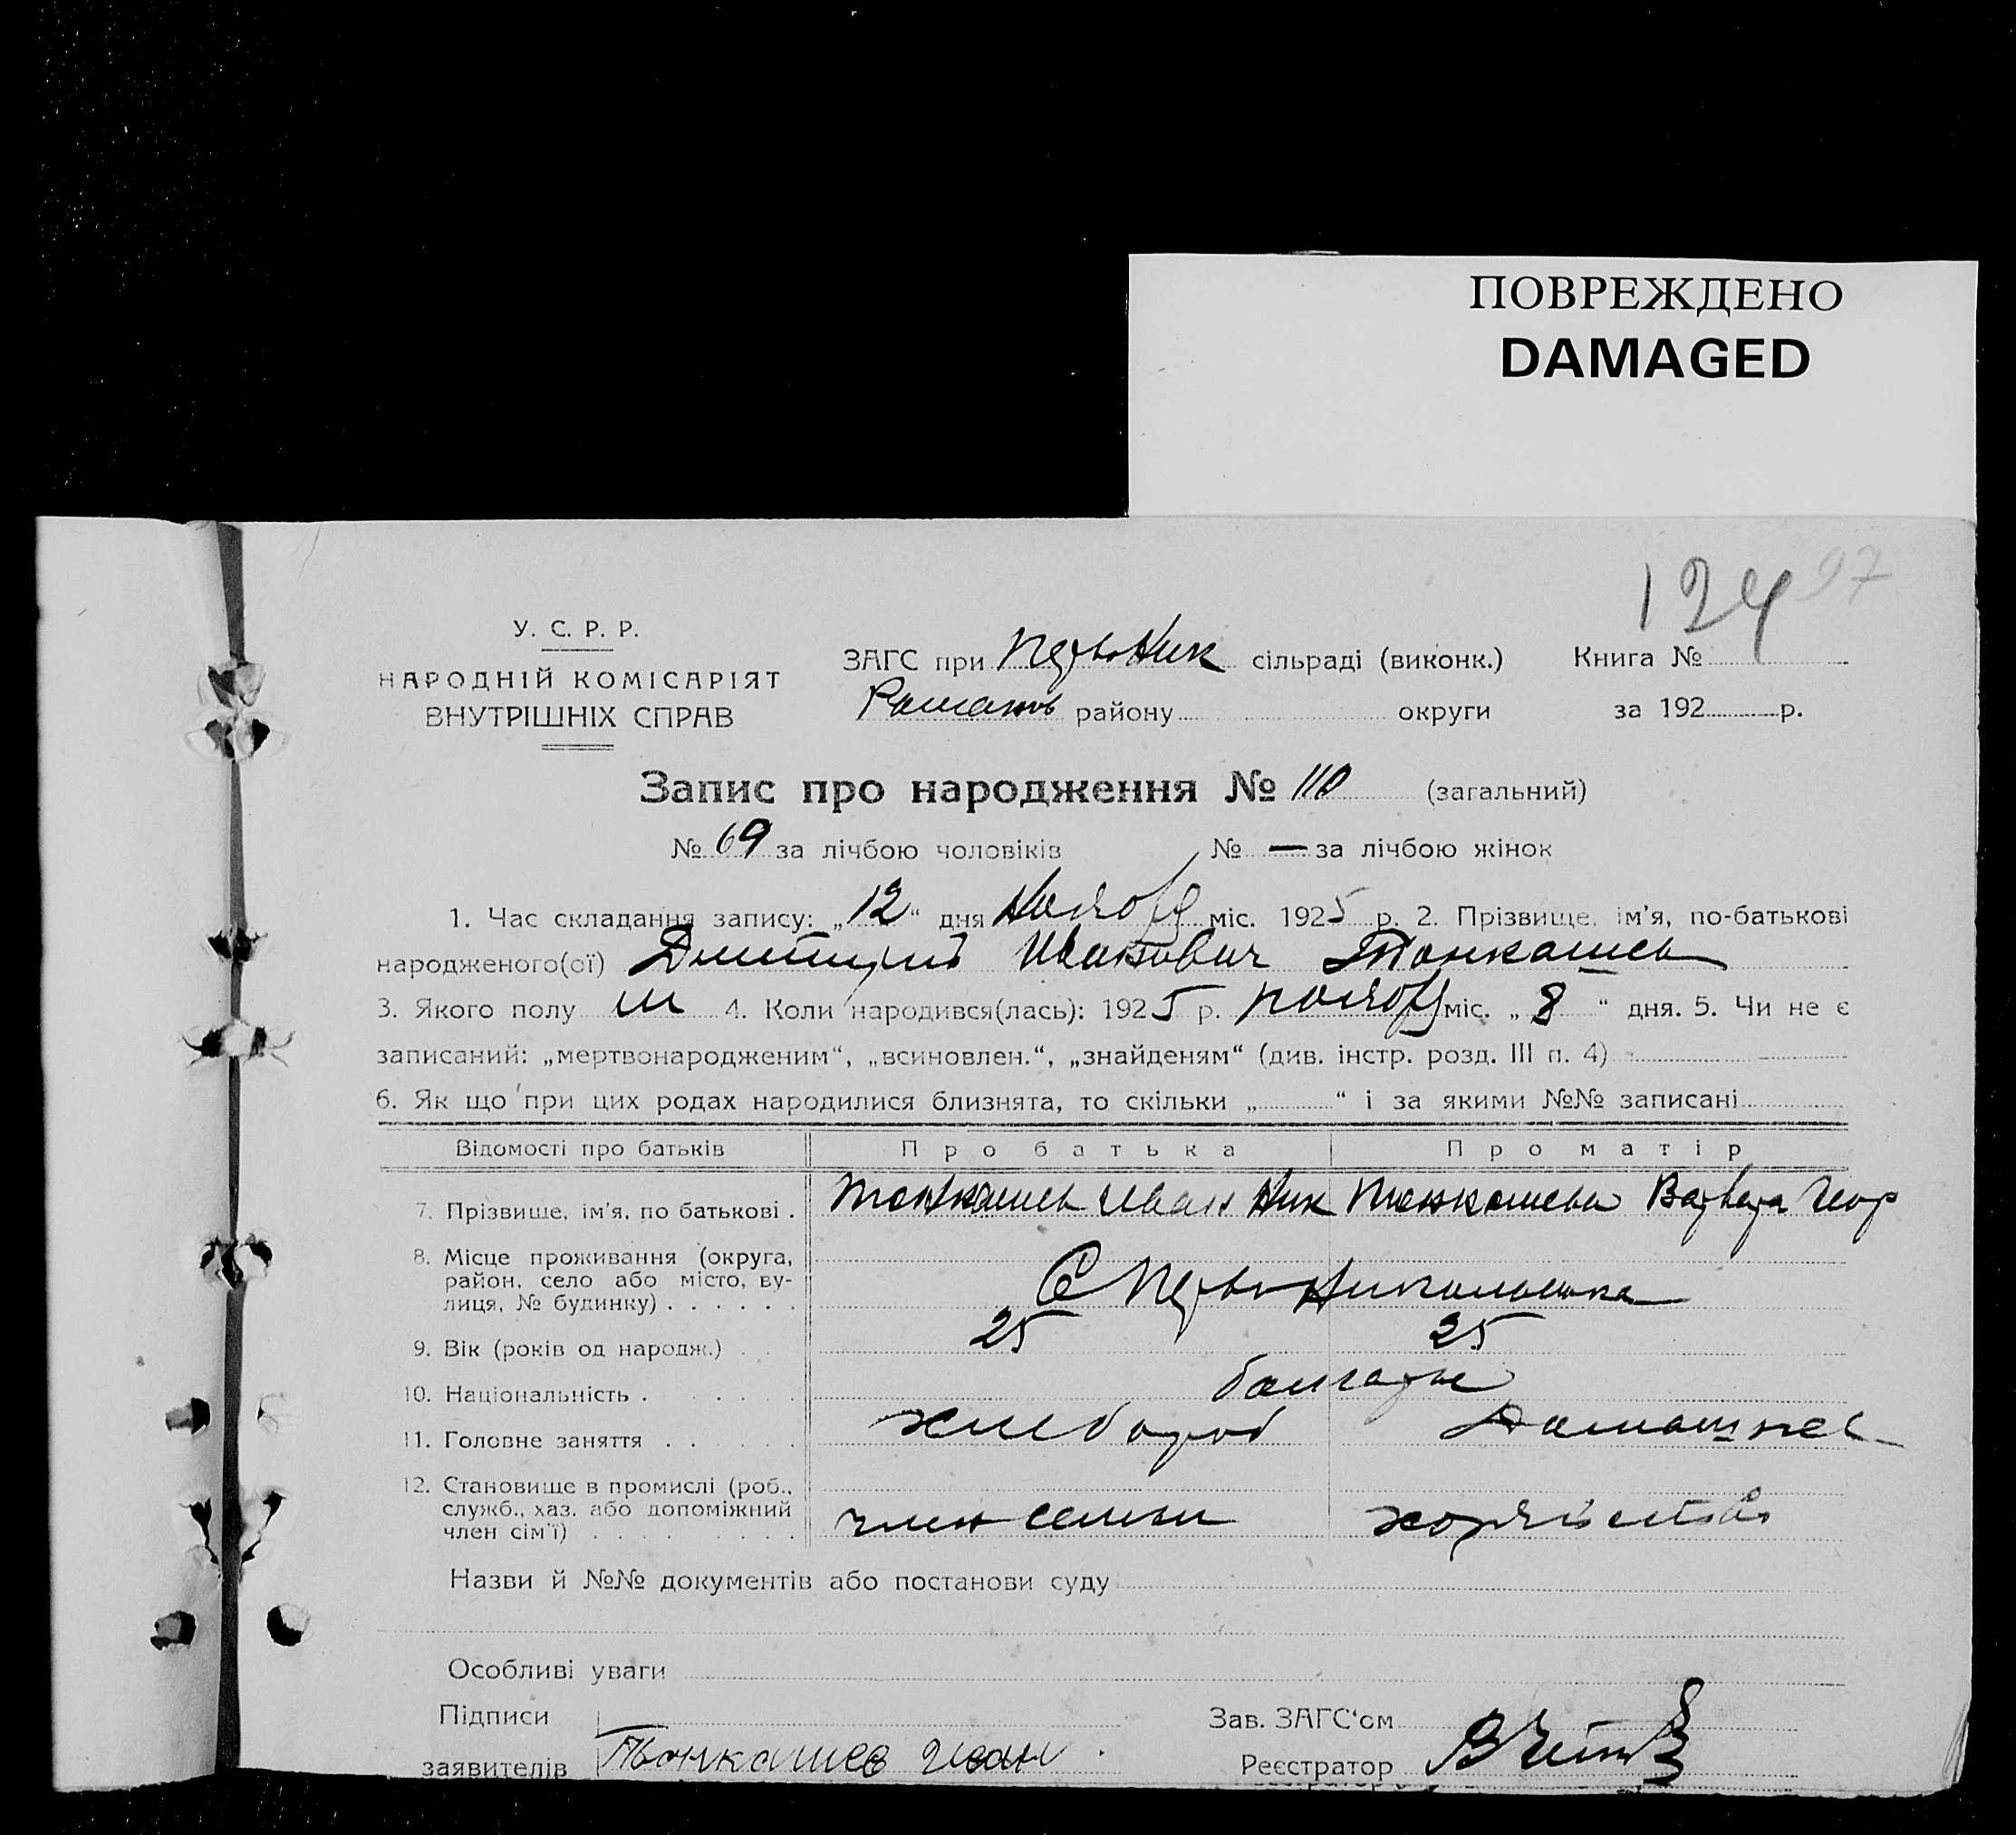 ПОВРЕЖДЕНО
DAMAGED
124 97
У. С. Р. Р.
НАРОДНІЙ КОМІСАРІЯТ
ВНУТРІШНІХ СПРАВ
ЗАГС при Перво Ник сільраді (виконк.) Книга №
Романов району округи за 192 р.
Запис про народження № 110 (загальний)
№ 69 за лічбою чоловіків № — за лічбою жінок
1. Час складання запису: „12“ дня Ноября міс. 1925 р. 2. Прізвище, ім'я, по-батькові
народженого(ої) Дмитрий Иванович Танкашев
3. Якого полу м 4. Коли народився(лась): 1925 р. ноября міс. „8“ дня. 5. Чи не є
записаний: „мертвонародженим“, „всиновлен.“, „знайденям“ (див. інстр. розд. III п. 4)
6. Як що при цих родах народилися близнята, то скільки „ “ і за якими №№ записані
Відомості про батьків Про батька Про матір
7. Прізвище, ім'я, по батькові . Танкашев Иван Ник Танкашева Варвара Геор
8. Місце проживання (округа,
район, село або місто, ву-
лиця, № будинку) . . . . . . С Перво Николаевка
9. Вік (років од народж.) . . 25 25
10. Національність . . . . . болгары
11. Головне заняття . . . . . . хлебороб Домашнее
12. Становище в промислі (роб.,
служб., хаз. або допоміжний
член сім'ї) . . . . . . . . . член семьи хозяйство
Назви й №№ документів або постанови суду
Особливі уваги
Підписи Зав. ЗАГС'ом
заявителів Танкашев Иван Реєстратор